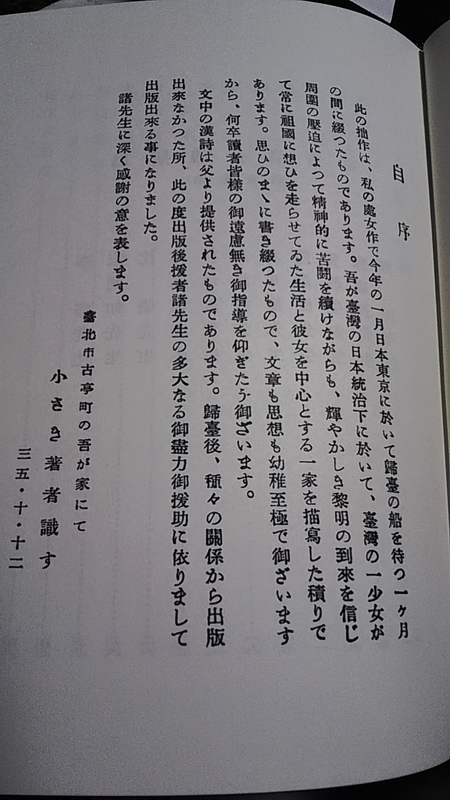 自序
此の拙作は、私の處女作で今年の一月日本東京に於いて歸臺の船を待つ一ヶ月
の間に綴つたものであります。吾が臺灣の日本統治下に於いて、臺灣の一少女が
周圍の壓迫によつて精神的に苦鬪を續けながらも、輝やかしき黎明の到來を信じ
て常に祖國に想ひを走らせてゐた生活と彼女を中心とする一家を描寫した積りで
あります。思ひのまゝに書き綴つたもので、文章も思想も幼稚至極で御ざいます
から、何卒讀者皆様の御遠慮無き御指導を仰ぎたう御ざいます。
文中の漢詩は父より提供されたものであります。歸臺後、種々の關係から出版
出來なかつた所、此の度出版後援者諸先生の多大なる御盡力御援助に依りまして
出版出來る事になりました。
諸先生に深く感謝の意を表します。
臺北市古亭町の吾が家にて
小さき著者識す
三五・十・十二